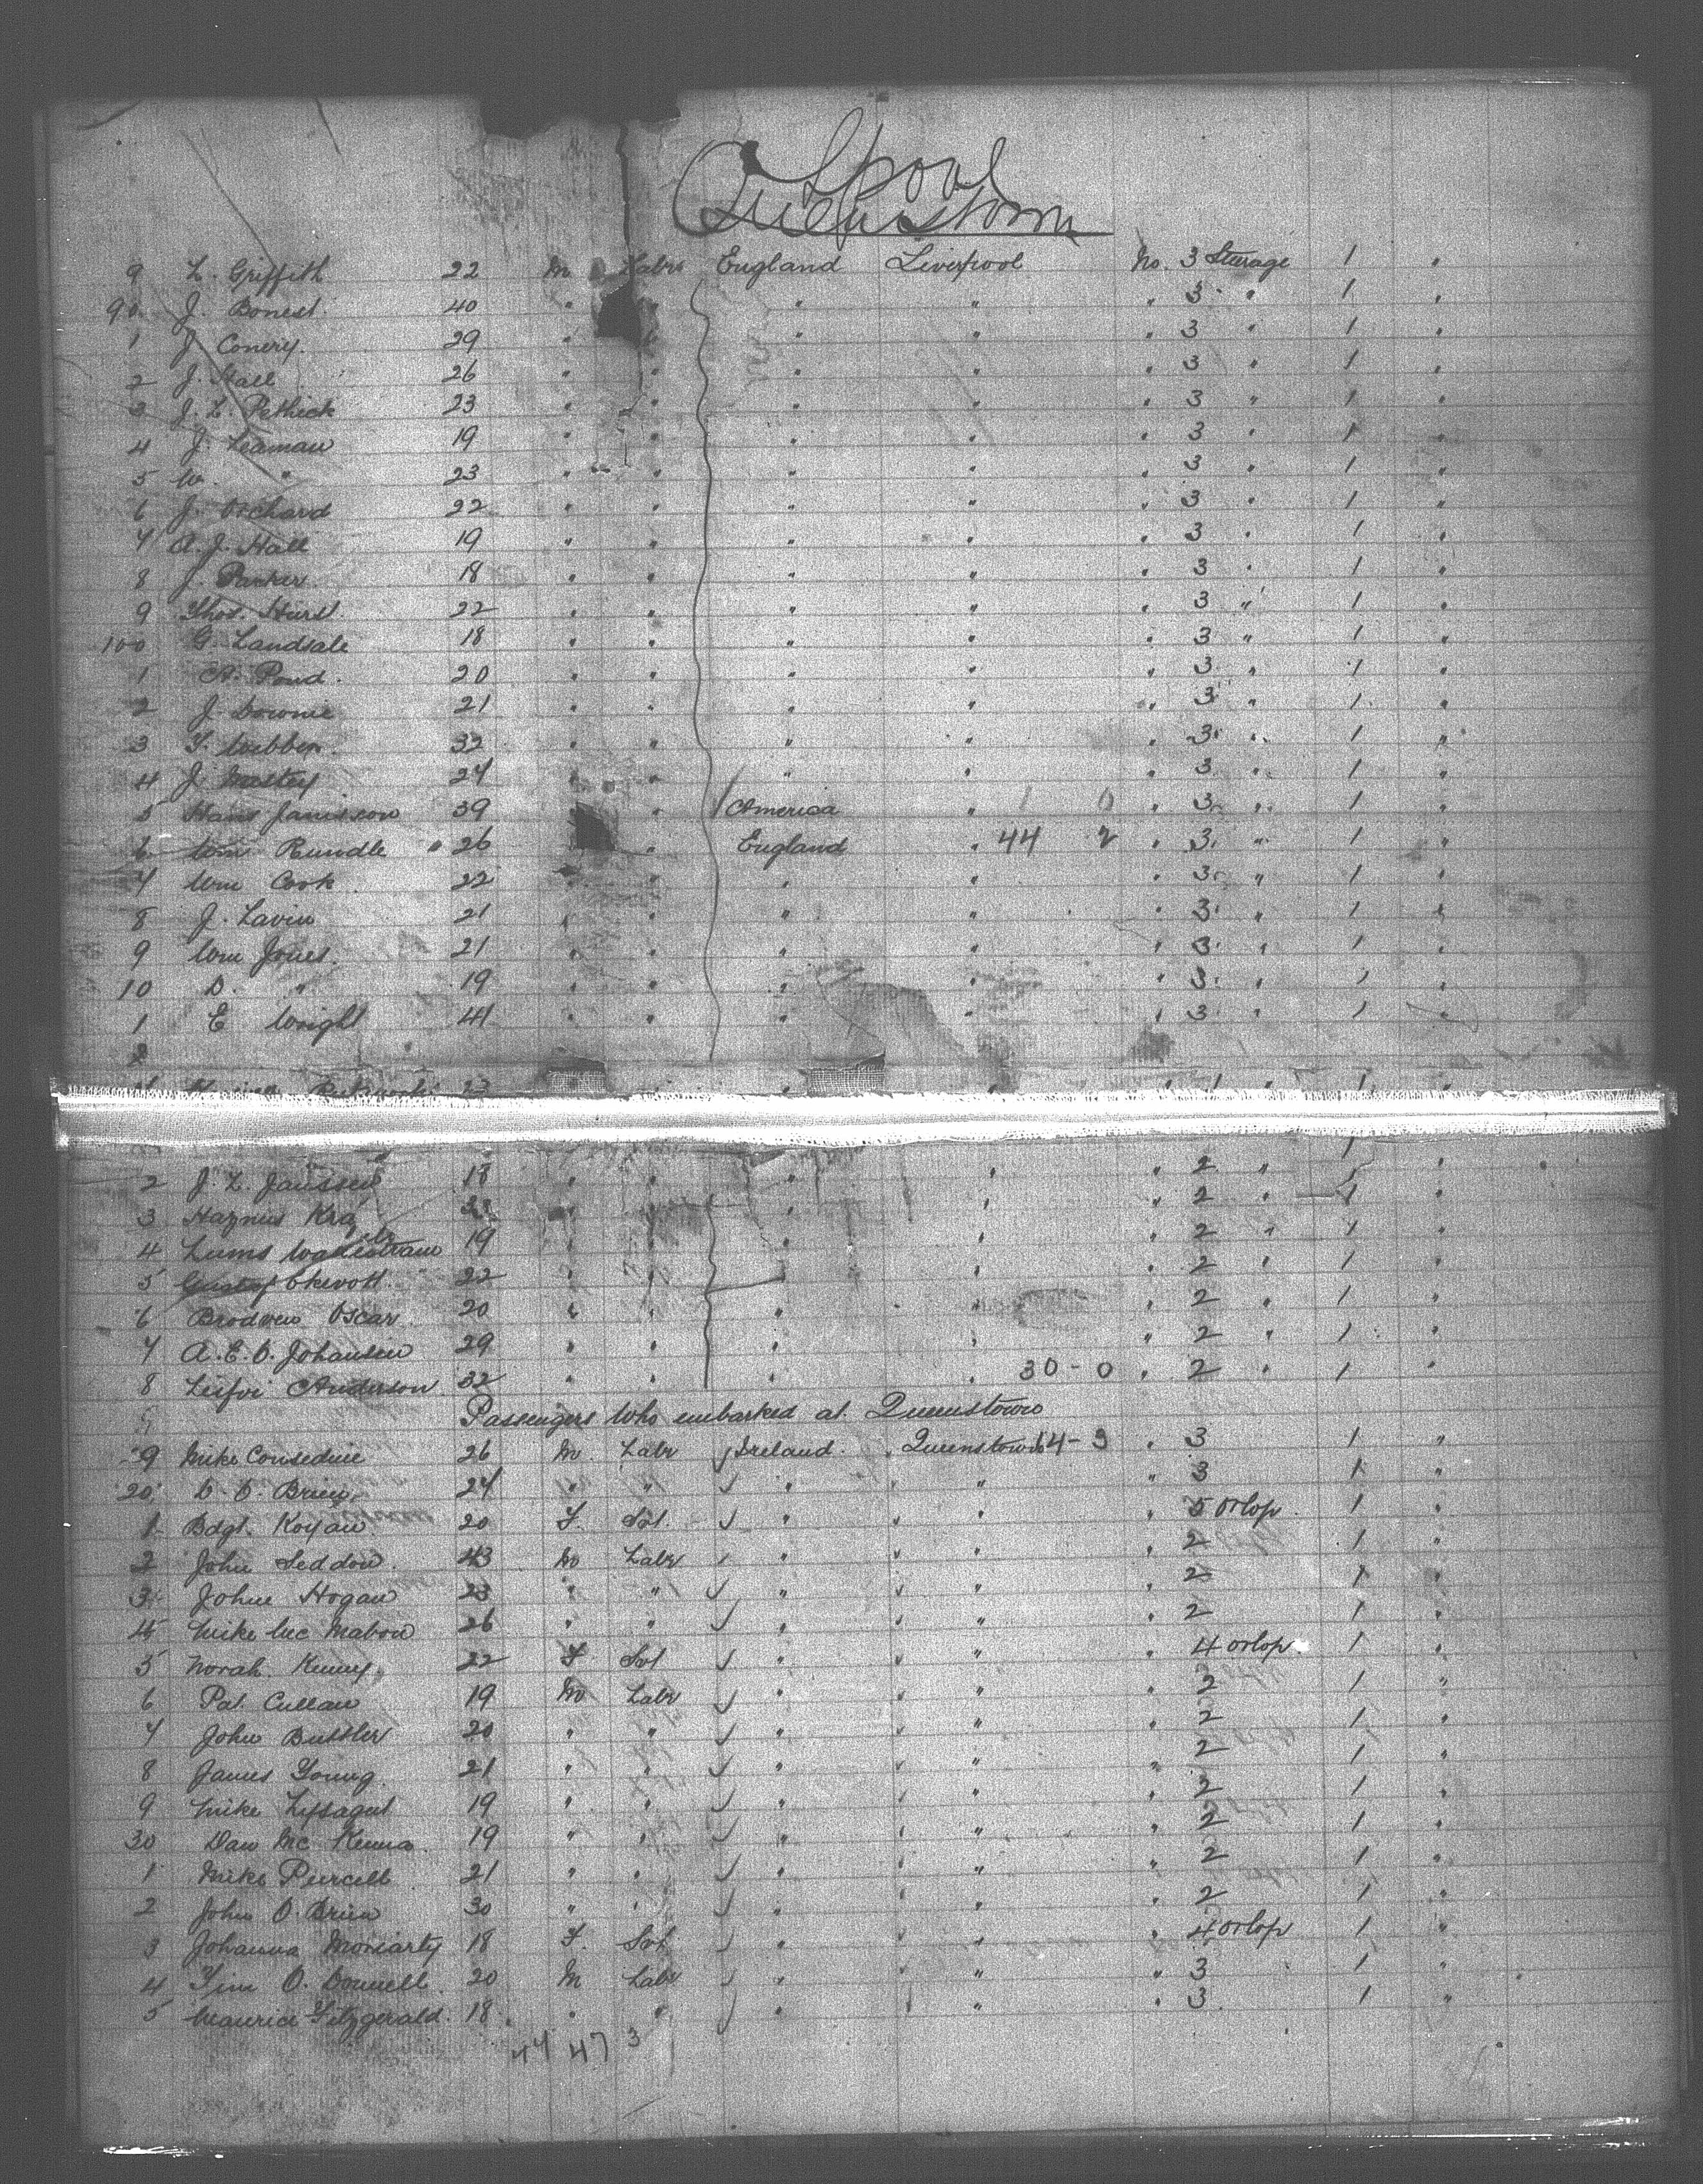 Lpool
Queenstown
9 L. Griffith 22 m Labr England Liverpool No. 3 Steerage 1 "
90 J. Bonest 40 " " " " " 3 " 1 "
1 J Conery 29 " " " " " 3 " 1 "
2 J. Hall 26 " " " " " 3 " 1 "
3 J. L. Pethick 23 " " " " " 3 " 1 "
4 J. Leaman 19 " " " " " 3 " 1 "
5 W. " 23 " " " " " 3 " 1 "
6 J. Orchard 22 " " " " " 3 " 1 "
7 A. J. Hall 19 " " " " " 3 " 1 "
8 J. Parker 18 " " " " " 3 " 1 "
9 Thos. Hurst 22 " " " " " 3 " 1 "
100 G. Landsale 18 " " " " " 3 " 1 "
1 A. Pond 20 " " " " " 3 " 1 "
2 J. Downie 21 " " " " " 3 " 1 "
3 F. Webber 32 " " " " " 3 " 1 "
4 J 24 " " " " " 3 " 1 "
5 Hans 39 " America " " 3 " 1 "
6 Wm Rundle 26 " England " 44 2 " 3 " 1 "
7 Wm Cook 22 " " " " " 3 " 1 "
8 J. Lavin 21 " " " " " 3 " 1 "
9 Wm Jones 21 " " " " " 3 " 1 "
10 D. " 19 " " " " " 3 " 1 "
1 E Wright 41 " " " " " 3 " 1 "
2
23 " " " 1 " 1 "
2 J. L. Janssen 18 " " " " " 2 " 1 "
3 Kra " " " " " 2 " 1 "
4 19 " " " " " 2 " 1 "
5 Gustaf 22 " " " " " 2 " 1 "
6 Oscar 20 " " " " " 2 " 1 "
7 A. E. O. Johansen 29 " " " " " 2 " 1 "
8 Anderson 32 " " " " 30-0 " 2 " 1 "
Passengers who embarked at Queenstown
9 Mike Consedine 26 M. Labr Ireland Queenstown 14-3 " 3 1 "
20 D. O. Brien 24 " " " " " 3 1 "
1 Bdgt. Koyan 20 F. Svt " " " 5 Orlop 1 "
2 John Seddon 43 M Labr " " " 2 1 "
3 John Hogan 23 " " " " " 2 1 "
4 Mike Mc Mahon 26 " " " " " 2 1 "
5 Norah Kenny 22 F. Svt " " " 4 Orlop 1 "
6 Pat. Cullan 19 M Labr " " " 2 1 "
7 John Buttler 20 " " " " " 2 1 "
8 James Young 21 " " " " " 2 1 "
9 Mike Lysagut 19 " " " " " 2 1 "
30 Dan Mc Kenna 19 " " " " " 2 1 "
1 Mike Purcell 21 " " " " " 2 1 "
2 John O. Brien 30 " " " " " 2 1 "
3 Johanna Moriarty 18 F. Svt " " " 4 Orlop 1 "
4 Tim O. Donnell 20 M Labr " " " 3 1 "
5 Maurice Fitzgerald 18 " " " " " 3 1 "
44 47 3